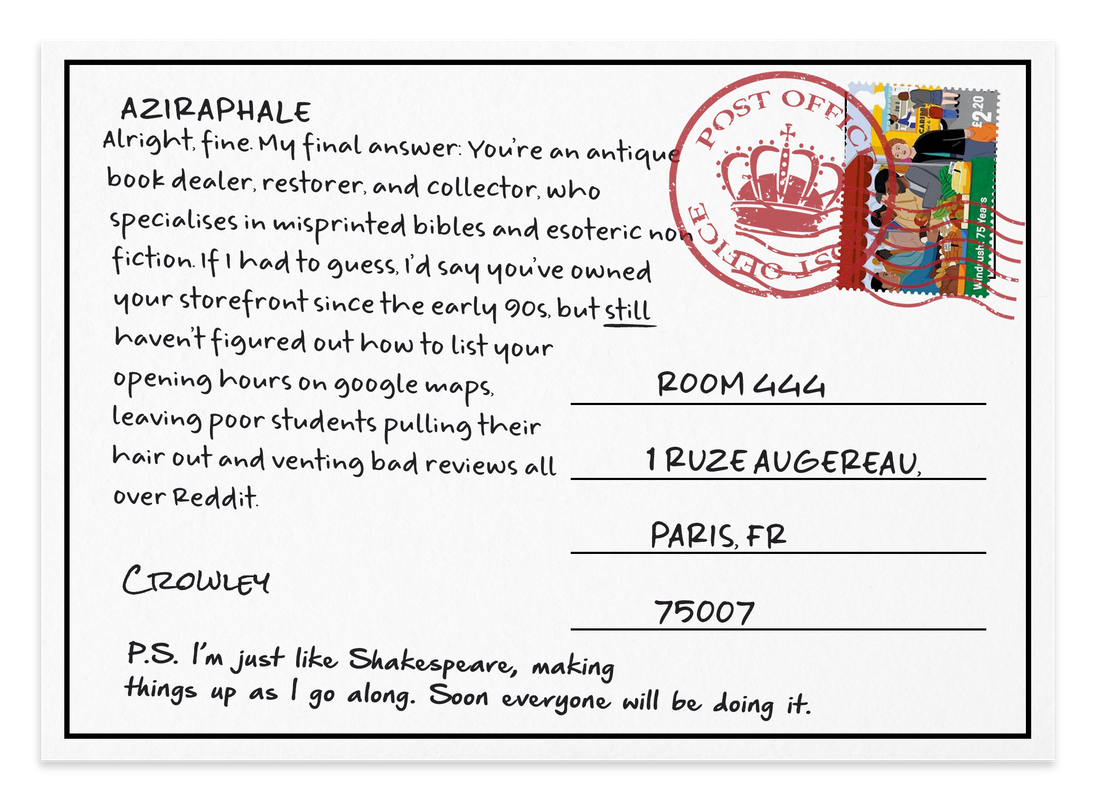 AZIRAPHALE
Alright, fine. My final answer: You're an antique
book dealer, restorer, and collector, who
specialises in misprinted bibles and esoteric non
fiction. If I had to guess, I'd say you've owned
your storefront since the early 90s, but still
haven't figured out how to list your
opening hours on google maps,
leaving poor students pulling their
hair out and venting bad reviews all
over Reddit.
CROWLEY
P.S. I'm just like Shakespeare, making
things up as I go along. Soon everyone will be doing it.
POST OFFICE
POST OFFICE
£2.20
Windrush: 75 Years
ROOM 444
1 RUZE AUGEREAU,
PARIS, FR
75007